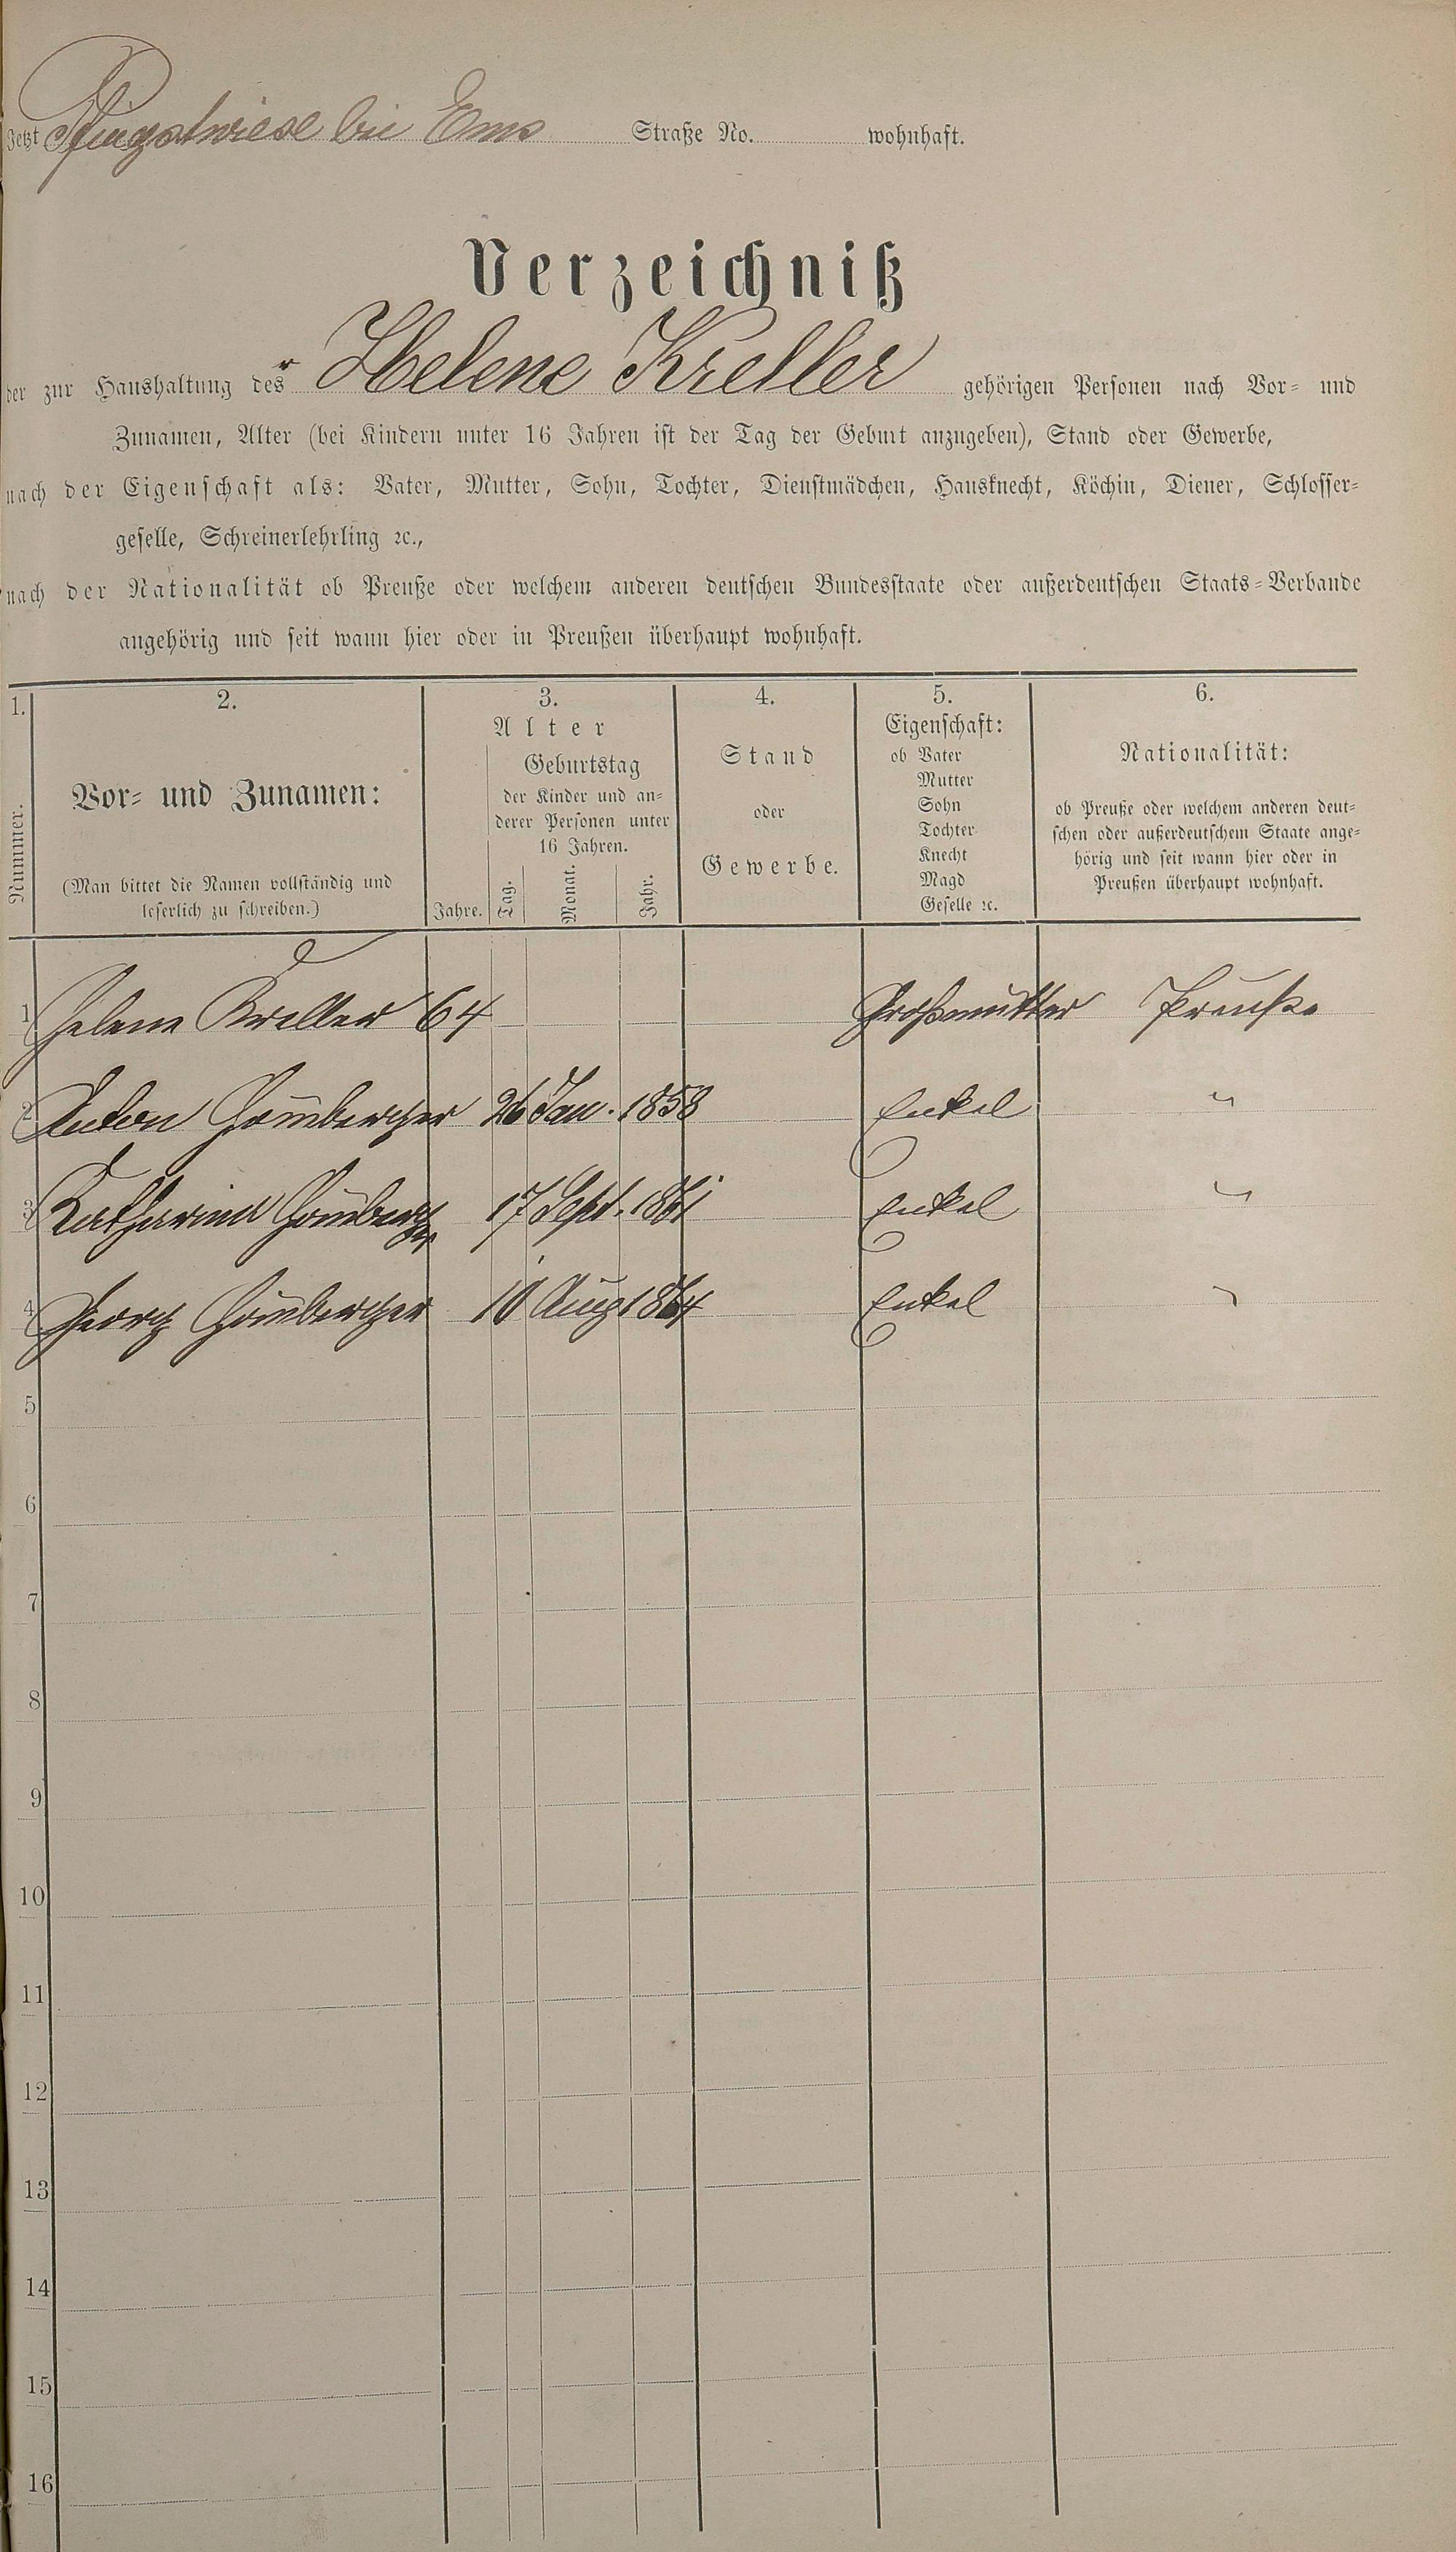 Jetzt Pfingstwiese bei Ems Straße No. wohnhaft.
Verzeichniß
der zur Haushaltung des r Helene Kreller gehörigen Personen nach Vor- und
Zunamen, Alter (bei Kindern unter 16 Jahren ist der Tag der Geburt anzugeben), Stand oder Gewerbe,
nach der Eigenschaft als: Vater, Mutter, Sohn, Tochter, Dienstmädchen, Hausknecht, Köchin, Diener, Schlosser-
geselle, Schreinerlehrling ꝛc.,
nach der Nationalität ob Preuße oder welchem anderen deutschen Bundesstaate oder außerdeutschen Staats-Verbande
angehörig und seit wann hier oder in Preußen überhaupt wohnhaft.
1. 2. 3. 4. 5. 6.
Nummer.
Vor- und Zunamen:
(Man bittet die Namen vollständig und
leserlich zu schreiben.)
Alter
Jahre.
Geburtstag
der Kinder und an-
derer Personen unter
16 Jahren.
Tag. Monat. Jahr.
Stand
oder
Gewerbe.
Eigenschaft:
ob Vater
Mutter
Sohn
Tochter
Knecht
Magd
Geselle ꝛc.
Nationalität:
ob Preuße oder welchem anderen deut-
schen oder außerdeutschem Staate ange-
hörig und seit wann hier oder in
Preußen überhaupt wohnhaft.
1 Helene Kreller 64 Großmutter Preuße
2 Anton Homberger 26 Jan. 1858 Enkel "
3 Katharina Homberger 17 Sept. 1861 Enkel "
4 Georg Homberger 10 Aug 1864 Enkel "
5
6
7
8
9
10
11
12
13
14
15
16